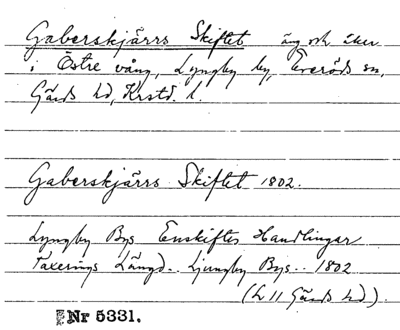 Gaberskjärrs Skiftet äng och åker
i Östre vång, Lyngby by, Everöds sn,
Gärds hd, Krstd. l.
Gaberskjärrs Skiftet 1802.
Lyngby Bys Enskiftes Handlingar
Taxerings Längd.. Ljungby Bys.. 1802
(L 11 Gärds hd).
Nr 5331.